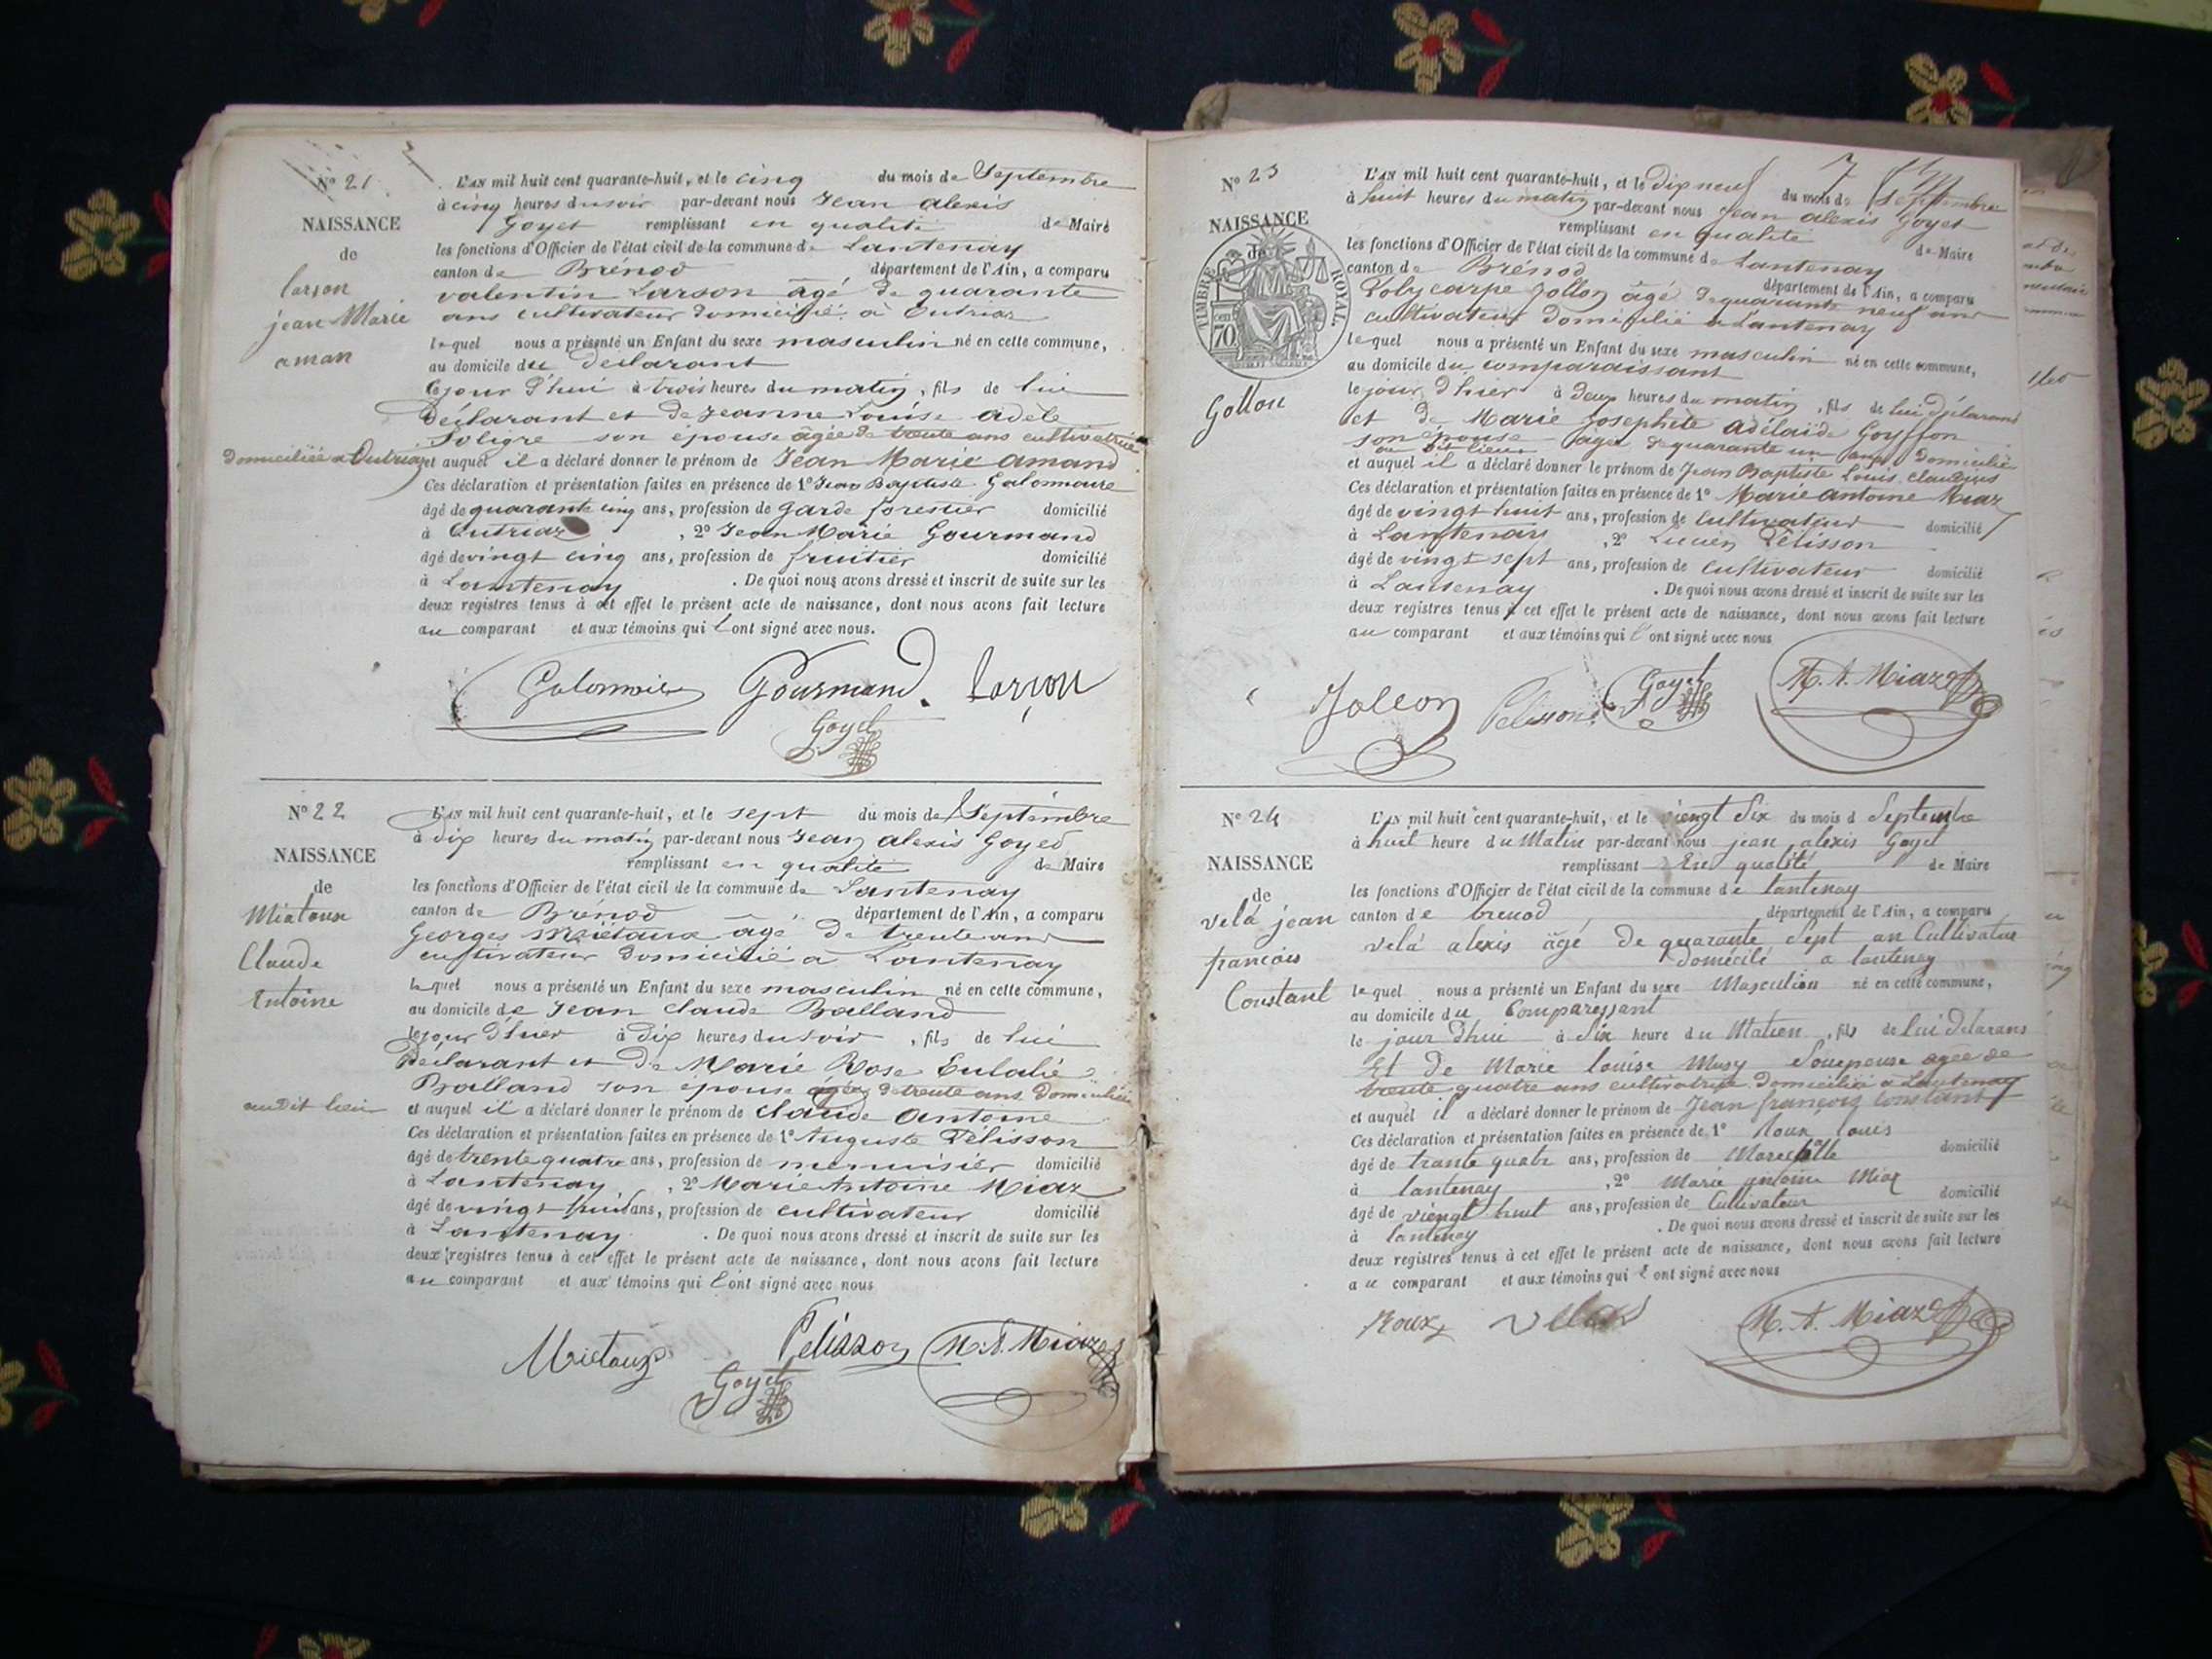 No 21
NAISSANCE
de
Larçon
jean Marie
aman
L'AN mil huit cent quarante-huit, et le cinq du mois de Septembre
à cinq heures du soir par-devant nous Jean alexis
Goyet remplissant en qualité de Maire
les fonctions d'Officier de l'état civil de la commune de Lantenay
canton de Brénod département de l'Ain, a comparu
valentin Larson âgé de quarante
ans cultivateur domicilié à Outriaz
lequel nous a présenté un Enfant du sexe masculin né en cette commune,
au domicile du déclarant
le jour d'hui à trois heures du matin, fils de lui
déclarant et de jeanne Louise adèle
Soligre son épouse âgée de trente ans cultivatrice
domiciliée a Outriaz et auquel il a déclaré donner le prénom de Jean Marie amand
Ces déclaration et présentation faites en présence de 1° Jean Baptiste Galonnaire
âgé de quarante cinq ans, profession de garde forestier domicilié
à Outriaz, 2° Jean Marie Gourmand
âgé de vingt cinq ans, profession de fruitier domicilié
à Lantenay. De quoi nous avons dressé et inscrit de suite sur les
deux registres tenus à cet effet le présent acte de naissance, dont nous avons fait lecture
au comparant et aux témoins qui l'ont signé avec nous.
Gourmand. Larçon
Goyet
No 22
NAISSANCE
de
Miétaux
Claude
Entoine
L'AN mil huit cent quarante-huit, et le sept du mois de Septembre
à dix heures du matin par-devant nous Jean alexis Goyed
remplissant en qualité de Maire
les fonctions d'Officier de l'état civil de la commune de Lantenay
canton de Brénod département de l'Ain, a comparu
Georges Miétaux âgé de trente ans
cultivateur domicilié à Lantenay
lequel nous a présenté un Enfant du sexe masculin né en cette commune,
au domicile de Jean Claude Balland
le jour d'hier à dix heures du soir, fils de lui
déclarant et de Marie Rose Eulalie
Balland son épouse âgée de trente ans domiciliée
audit lieu et auquel il a déclaré donner le prénom de Claude Antoine
Ces déclaration et présentation faites en présence de 1° Auguste Pélisson
âgé de trente quatre ans, profession de menuisier domicilié
à Lantenay, 2° Marie Antoine Miaz
âgé de vingt huit ans, profession de cultivateur domicilié
à Lantenay. De quoi nous avons dressé et inscrit de suite sur les
deux registres tenus à cet effet le présent acte de naissance, dont nous avons fait lecture
au comparant et aux témoins qui l'ont signé avec nous
Miétaux Pelisson M. A. Miaz
Goyet
No 23
NAISSANCE
de
TIMBRE ROYAL
cen 70
Gollon
L'AN mil huit cent quarante-huit, et le dix neuf du mois de Septembre
à huit heures du matin par-devant nous Jean alexis Goyet
remplissant en qualité de Maire
les fonctions d'Officier de l'état civil de la commune de Lantenay
canton de Brénod département de l'Ain, a comparu
Polycarpe Jollon âgé de quarante neuf ans
cultivateur domicilié a Lantenay
lequel nous a présenté un Enfant du sexe masculin né en cette commune,
au domicile du comparaissant
le jour d'hier à deux heures du matin, fils de lui déclarant
et de Marie Josephete adélaïde Goyffon
son épouse agée de quarante un ans domiciliée
au dit lieu
et auquel il a déclaré donner le prénom de Jean Baptiste Louis Claudius
Ces déclaration et présentation faites en présence de 1° Marie antoine Miaz
âgé de vingt huit ans, profession de cultivateur domicilié
à Lantenay, 2° Lucien Pélisson
âgé de vingt sept ans, profession de cultivateur domicilié
à Lantenay. De quoi nous avons dressé et inscrit de suite sur les
deux registres tenus à cet effet le présent acte de naissance, dont nous avons fait lecture
au comparant et aux témoins qui l'ont signé avec nous
Jollon Pelisson Goyet M. A. Miaz
No 24
NAISSANCE
de
velà jean
francois
Constant
L'AN mil huit cent quarante-huit, et le viengt Six du mois d Septembre
à huit heure du Matin par-devant nous jean alexis Goyet
remplissant En qualité de Maire
les fonctions d'Officier de l'état civil de la commune de lantenay
canton de brenod département de l'Ain, a comparu
velà alexis âgé de quarante Sept an Cultivatur
domicilé a lantenay
lequel nous a présenté un Enfant du sexe Masculien né en cette commune,
au domicile du Comparessant
le jour d'hui à Six heure du Matien, fils de lui délarans
Et De Marie louise Musy Sonepouse agée de
trente quatre ans cultivatrice domiciliée a Lantenay
et auquel il a déclaré donner le prénom de Jean françois Constant
Ces déclaration et présentation faites en présence de 1° Roux louis
âgé de trante quatr ans, profession de domicilié
à lantenay, 2° Marie antoine Miaz
âgé de viengt huit ans, profession de Cultivateur domicilié
à lantenay. De quoi nous avons dressé et inscrit de suite sur les
deux registres tenus à cet effet le présent acte de naissance, dont nous avons fait lecture
au comparant et aux témoins qui l'ont signé avec nous
Roux M. A. Miaz